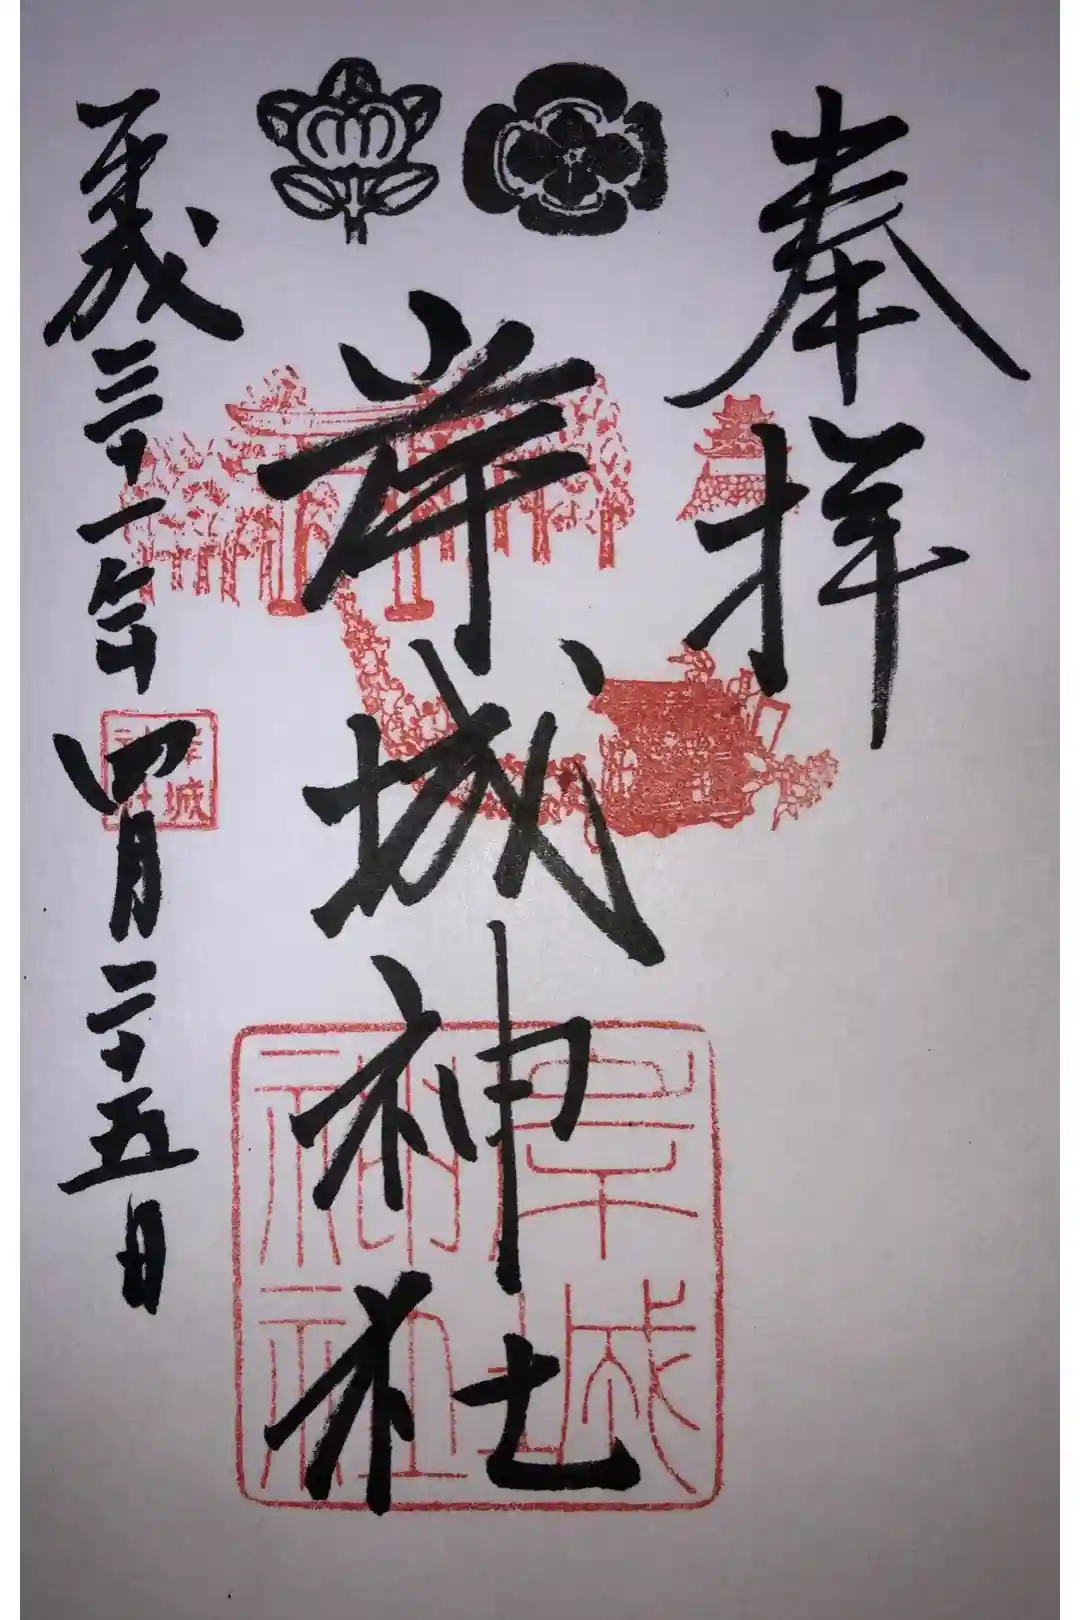 奉拝
岸城神社
平成三十一年四月二十五日
岸城神社
岸城神社